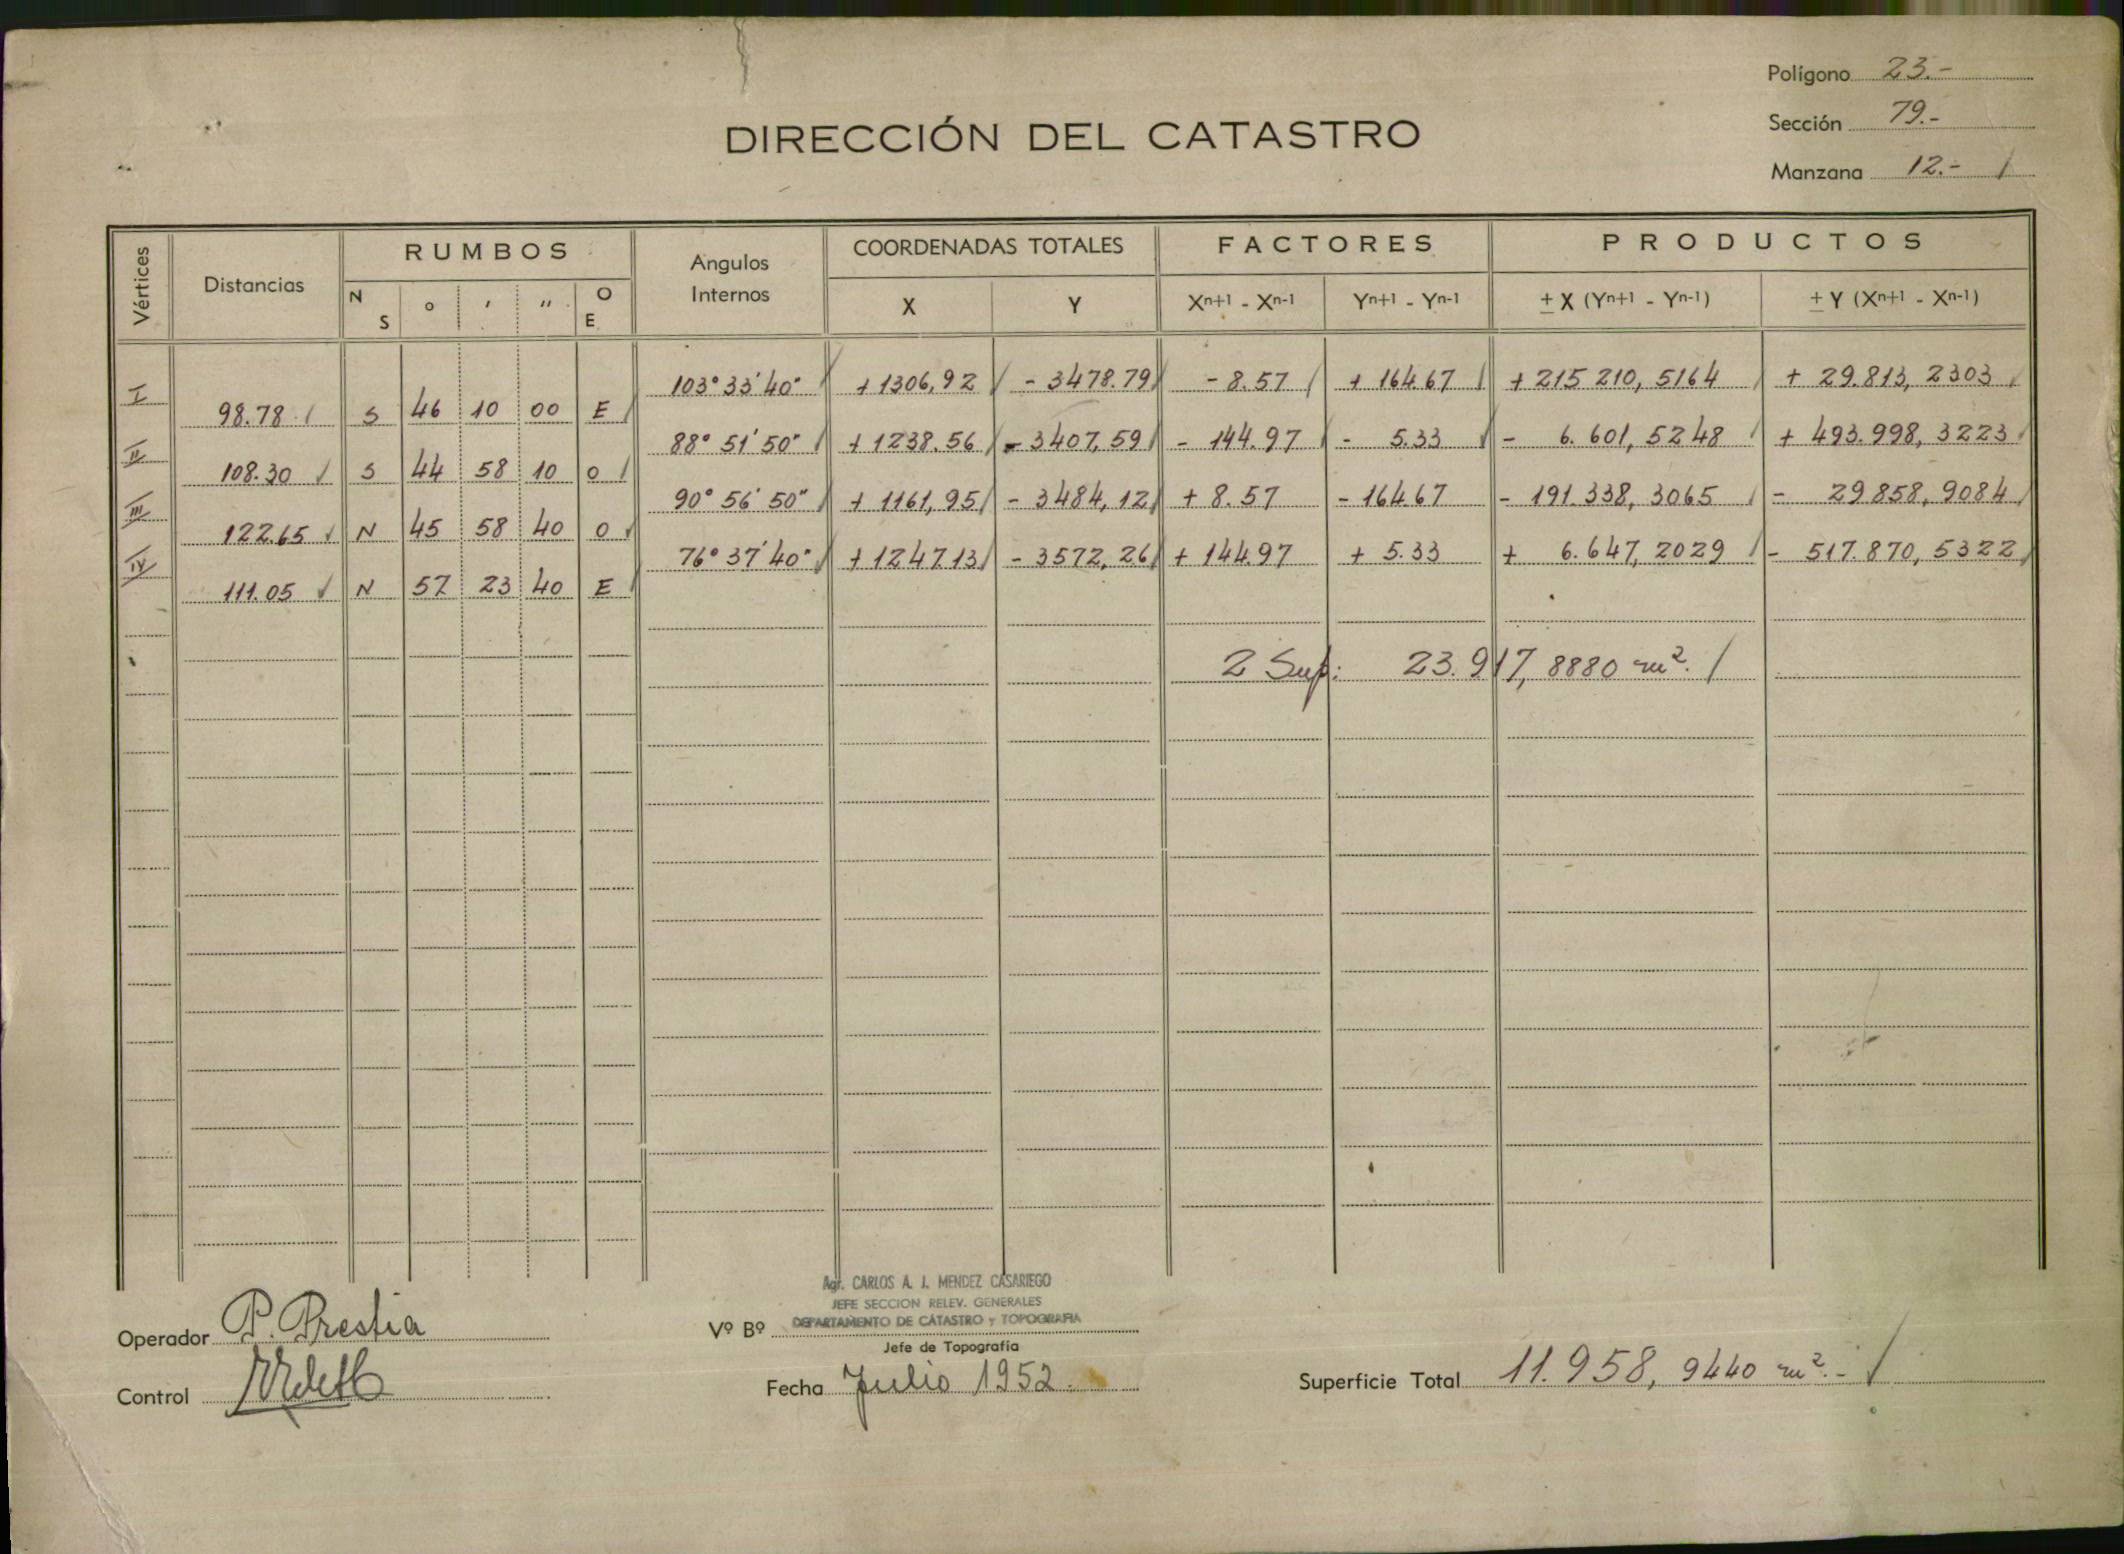 Polígono 23.-
Sección 79.-
Manzana 12.- /
DIRECCIÓN DEL CATASTRO
Vértices Distancias RUMBOS Angulos Internos COORDENADAS TOTALES FACTORES PRODUCTOS
N S ° ' '' O E X Y Xn+1 - Xn-1 Yn+1 - Yn-1 ± X (Yn+1 - Yn-1) ± Y (Xn+1 - Xn-1)
I 103° 33' 40" + 1306,92 - 3478.79 - 8.57 + 164.67 + 215 210, 5164 + 29.813, 2303
98.78 S 46 10 00 E
II 88° 51' 50" + 1238.56 - 3407,59 - 144.97 - 5.33 - 6.601, 5248 + 493.998, 3223
108.30 S 44 58 10 O
III 90° 56' 50" + 1161,95 - 3484,12 + 8.57 - 164.67 - 191.338, 3065 - 29858, 9084
122.65 N 45 58 40 O
IV 76° 37' 40" + 1247.13 - 3572,26 + 144.97 + 5.33 + 6.647, 2029 - 517.870, 5322
111.05 N 57 23 40 E
2 Sup: 23.917, 8880 m². /
Agr. CARLOS A. J. MENDEZ CASARIEGO
JEFE SECCION RELEV. GENERALES
DEPARTAMENTO DE CATASTRO y TOPOGRAFIA
Operador P. Prestia
Vº Bº
Jefe de Topografía
Control
Fecha Julio 1952.
Superficie Total 11.958, 9440 m².- /